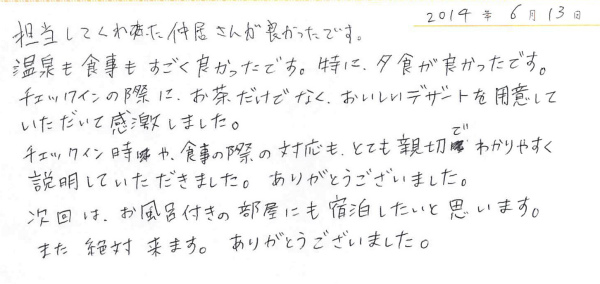 2014年6月13日
担当してくれた仲居さんが良かったです。
温泉も食事もすごく良かったです。特に、夕食が良かったです。
チェックインの際に、お茶だけでなく、おいしいデザートを用意して
いただいて感激しました。
チェックイン時や、食事の際の対応も、とても親切でわかりやすく
説明していただきました。ありがとうございました。
次回は、お風呂付きの部屋にも宿泊したいと思います。
また絶対来ます。ありがとうございました。